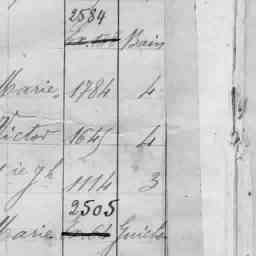 2584
Bain
Marie, 1784 4
Victor 1645 4
1114 3
2505
Marie